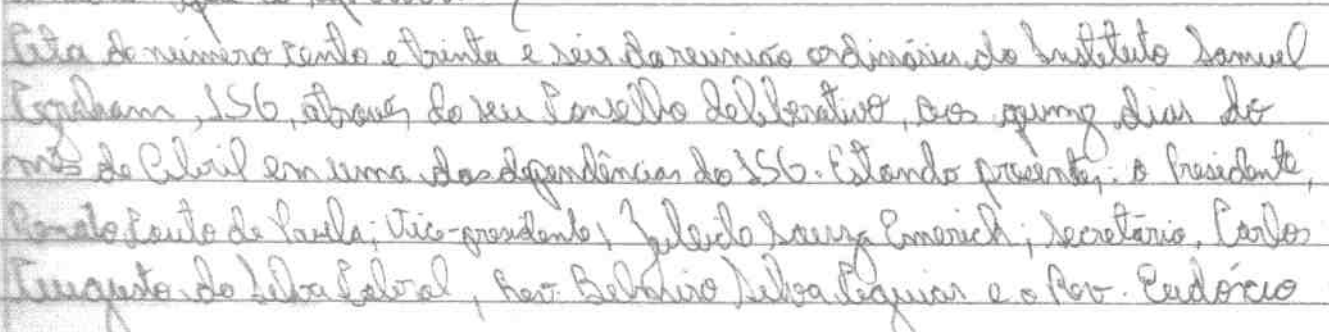 Ata de número cento e trinta e seis da reunião ordinária do Instituto Samuel
Graham, ISG, através do seu Conselho deliberativo, aos quinze dias do
mês de Abril em uma das dependências do ISG. Estando presente; o Presidente,
Renato Couto de Paula; Vice-presidente, Souza Emerich; Secretário, Carlos
Augusto da Silva Cabral, Rev. Silva e o Rev. Eudórcio